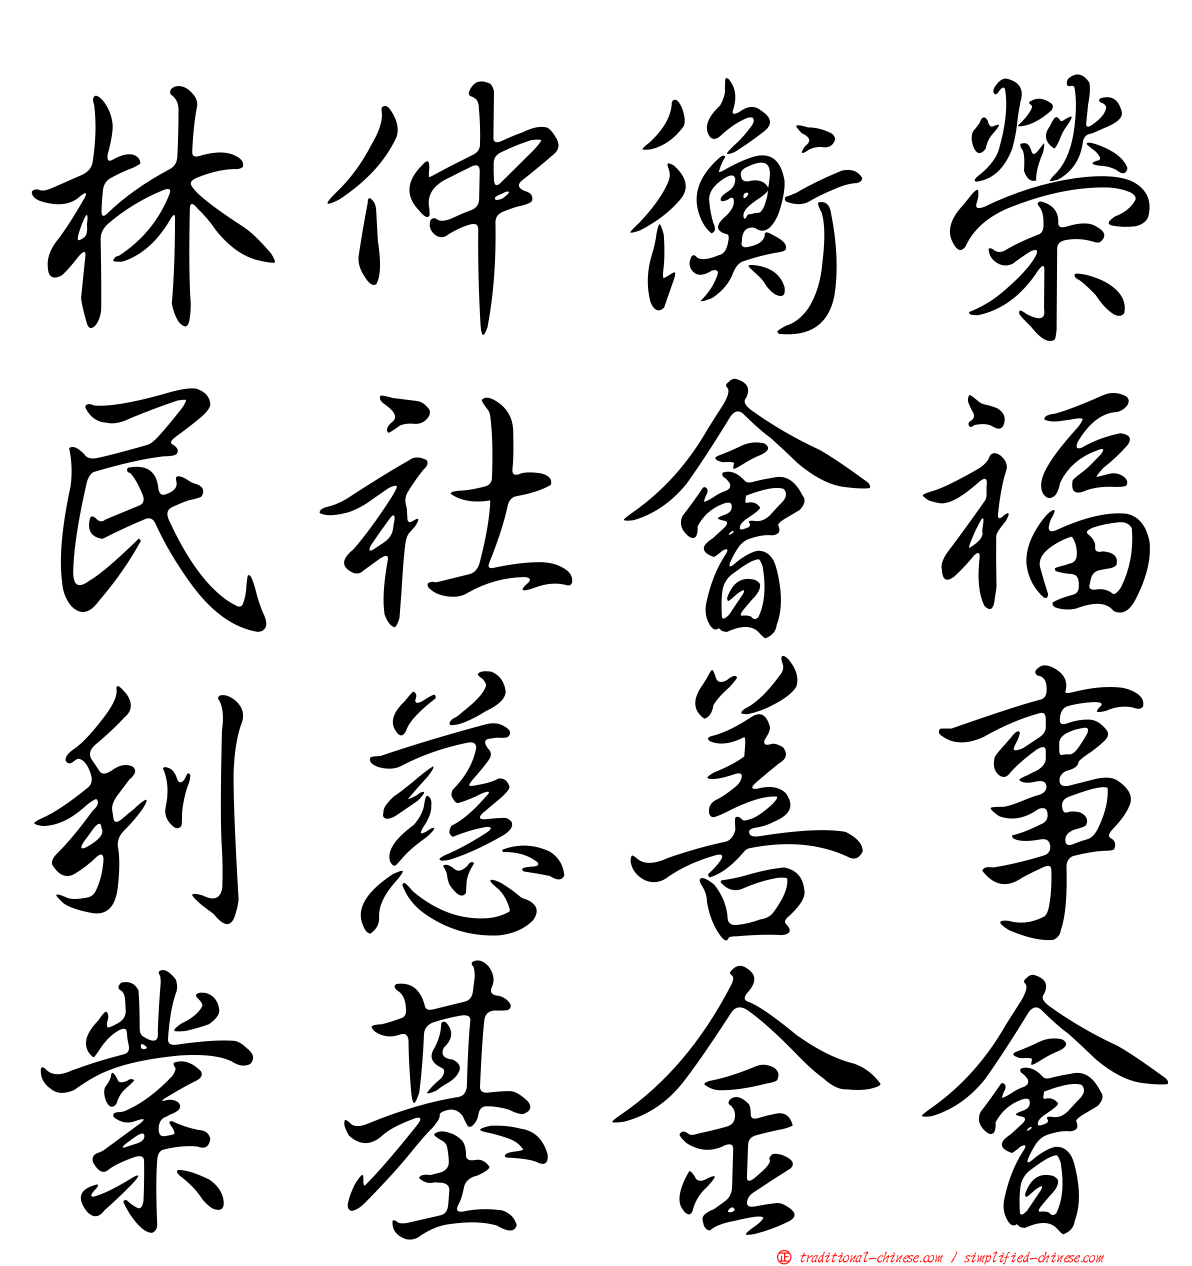 林仲衡榮
民社會福
利慈善事
業基金會
正 traditional-chinese.com / simplified-chinese.com